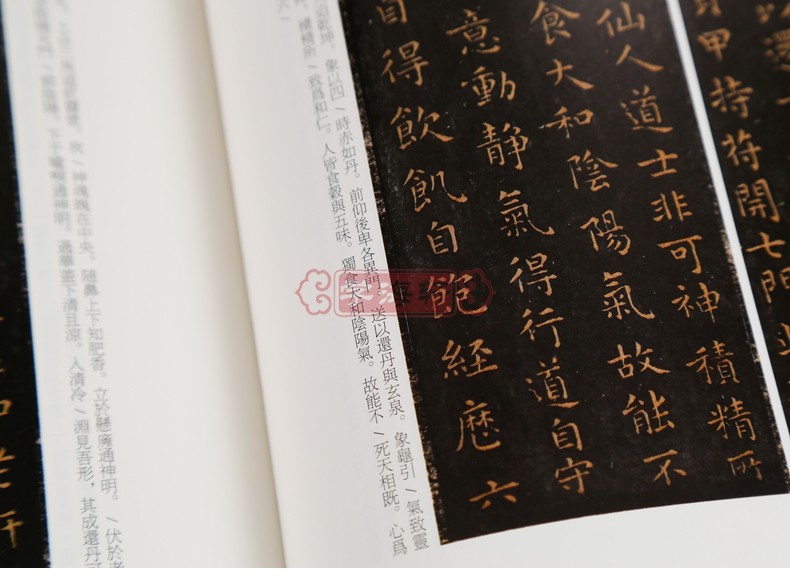 以還
甲持符開七門
仙人道士非可神積精所
食大和陰陽氣故能不
意動靜氣得行道自守
自得飲飢自飽経歷六
乾坤。象以四 / 時赤如丹。前仰後卑各異門。送以還丹與玄泉。象龜引 / 氣致靈
積精所 / 致爲和仁。人皆食穀與五味。獨食太和陰陽氣。故能不 / 死天相既。心爲
神魂魄在中央。隨鼻上下知肥香。立於懸廱通神明。 / 伏於老
下于嚨喉通神明。過華蓋下清且涼。入清冷 / 淵見吾形，其成還丹可